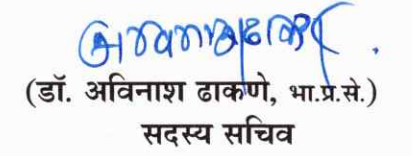 (डॉ. अविनाश ढाकणे, भा.प्र.से.)
सदस्य सचिव